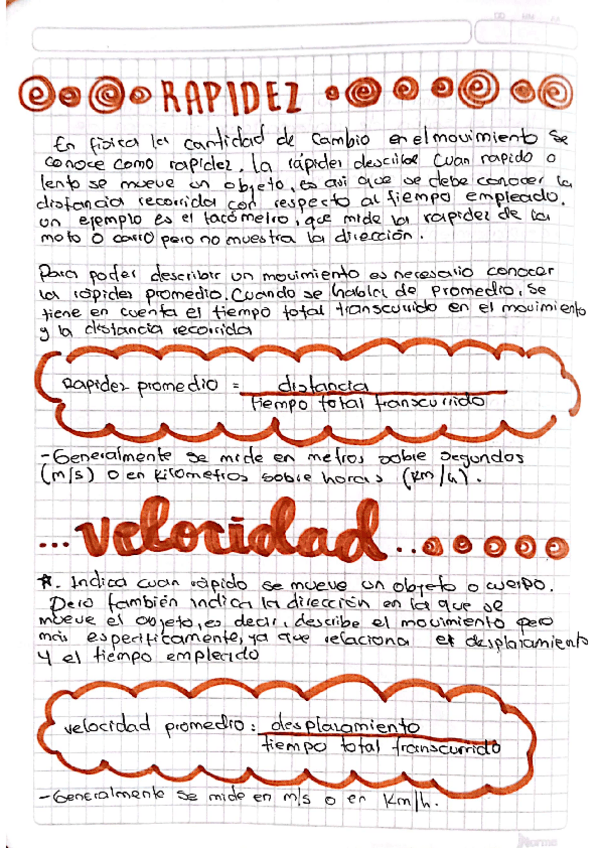 RAPIDEZ
En física la cantidad de cambio en el movimiento se
conoce como rapidez. La rápidez describe cuan rapido o
lento se mueve un objeto, es asi que se debe conocer la
distancia recorrida con respecto al tiempo empleado.
un ejemplo es el tacómetro, que mide la rapidez de la
moto o carro pero no muestra la dirección.
Para poder describir un movimiento es necesario conocer
la rápidez promedio. Cuando se habla de promedio, se
tiene en cuenta el tiempo total transcurrido en el movimiento
y la distancia recorrida
Rapidez promedio = distancia
tiempo total transcurrido
- Generalmente se mide en metros sobre segundos
(m/s) o en kilometros sobre horas (km/h).
...velocidad...
*. Indica cuan rápido se mueve un objeto o cuerpo.
Pero también indica la dirección en la que se
mueve el objeto, es decir, describe el movimiento pero
más especificamente, ya que relaciona el desplazamiento
y el tiempo empleado
velocidad promedio: desplazamiento
tiempo total transcurrido
- Generalmente se mide en m/s o en Km/h.
Norma